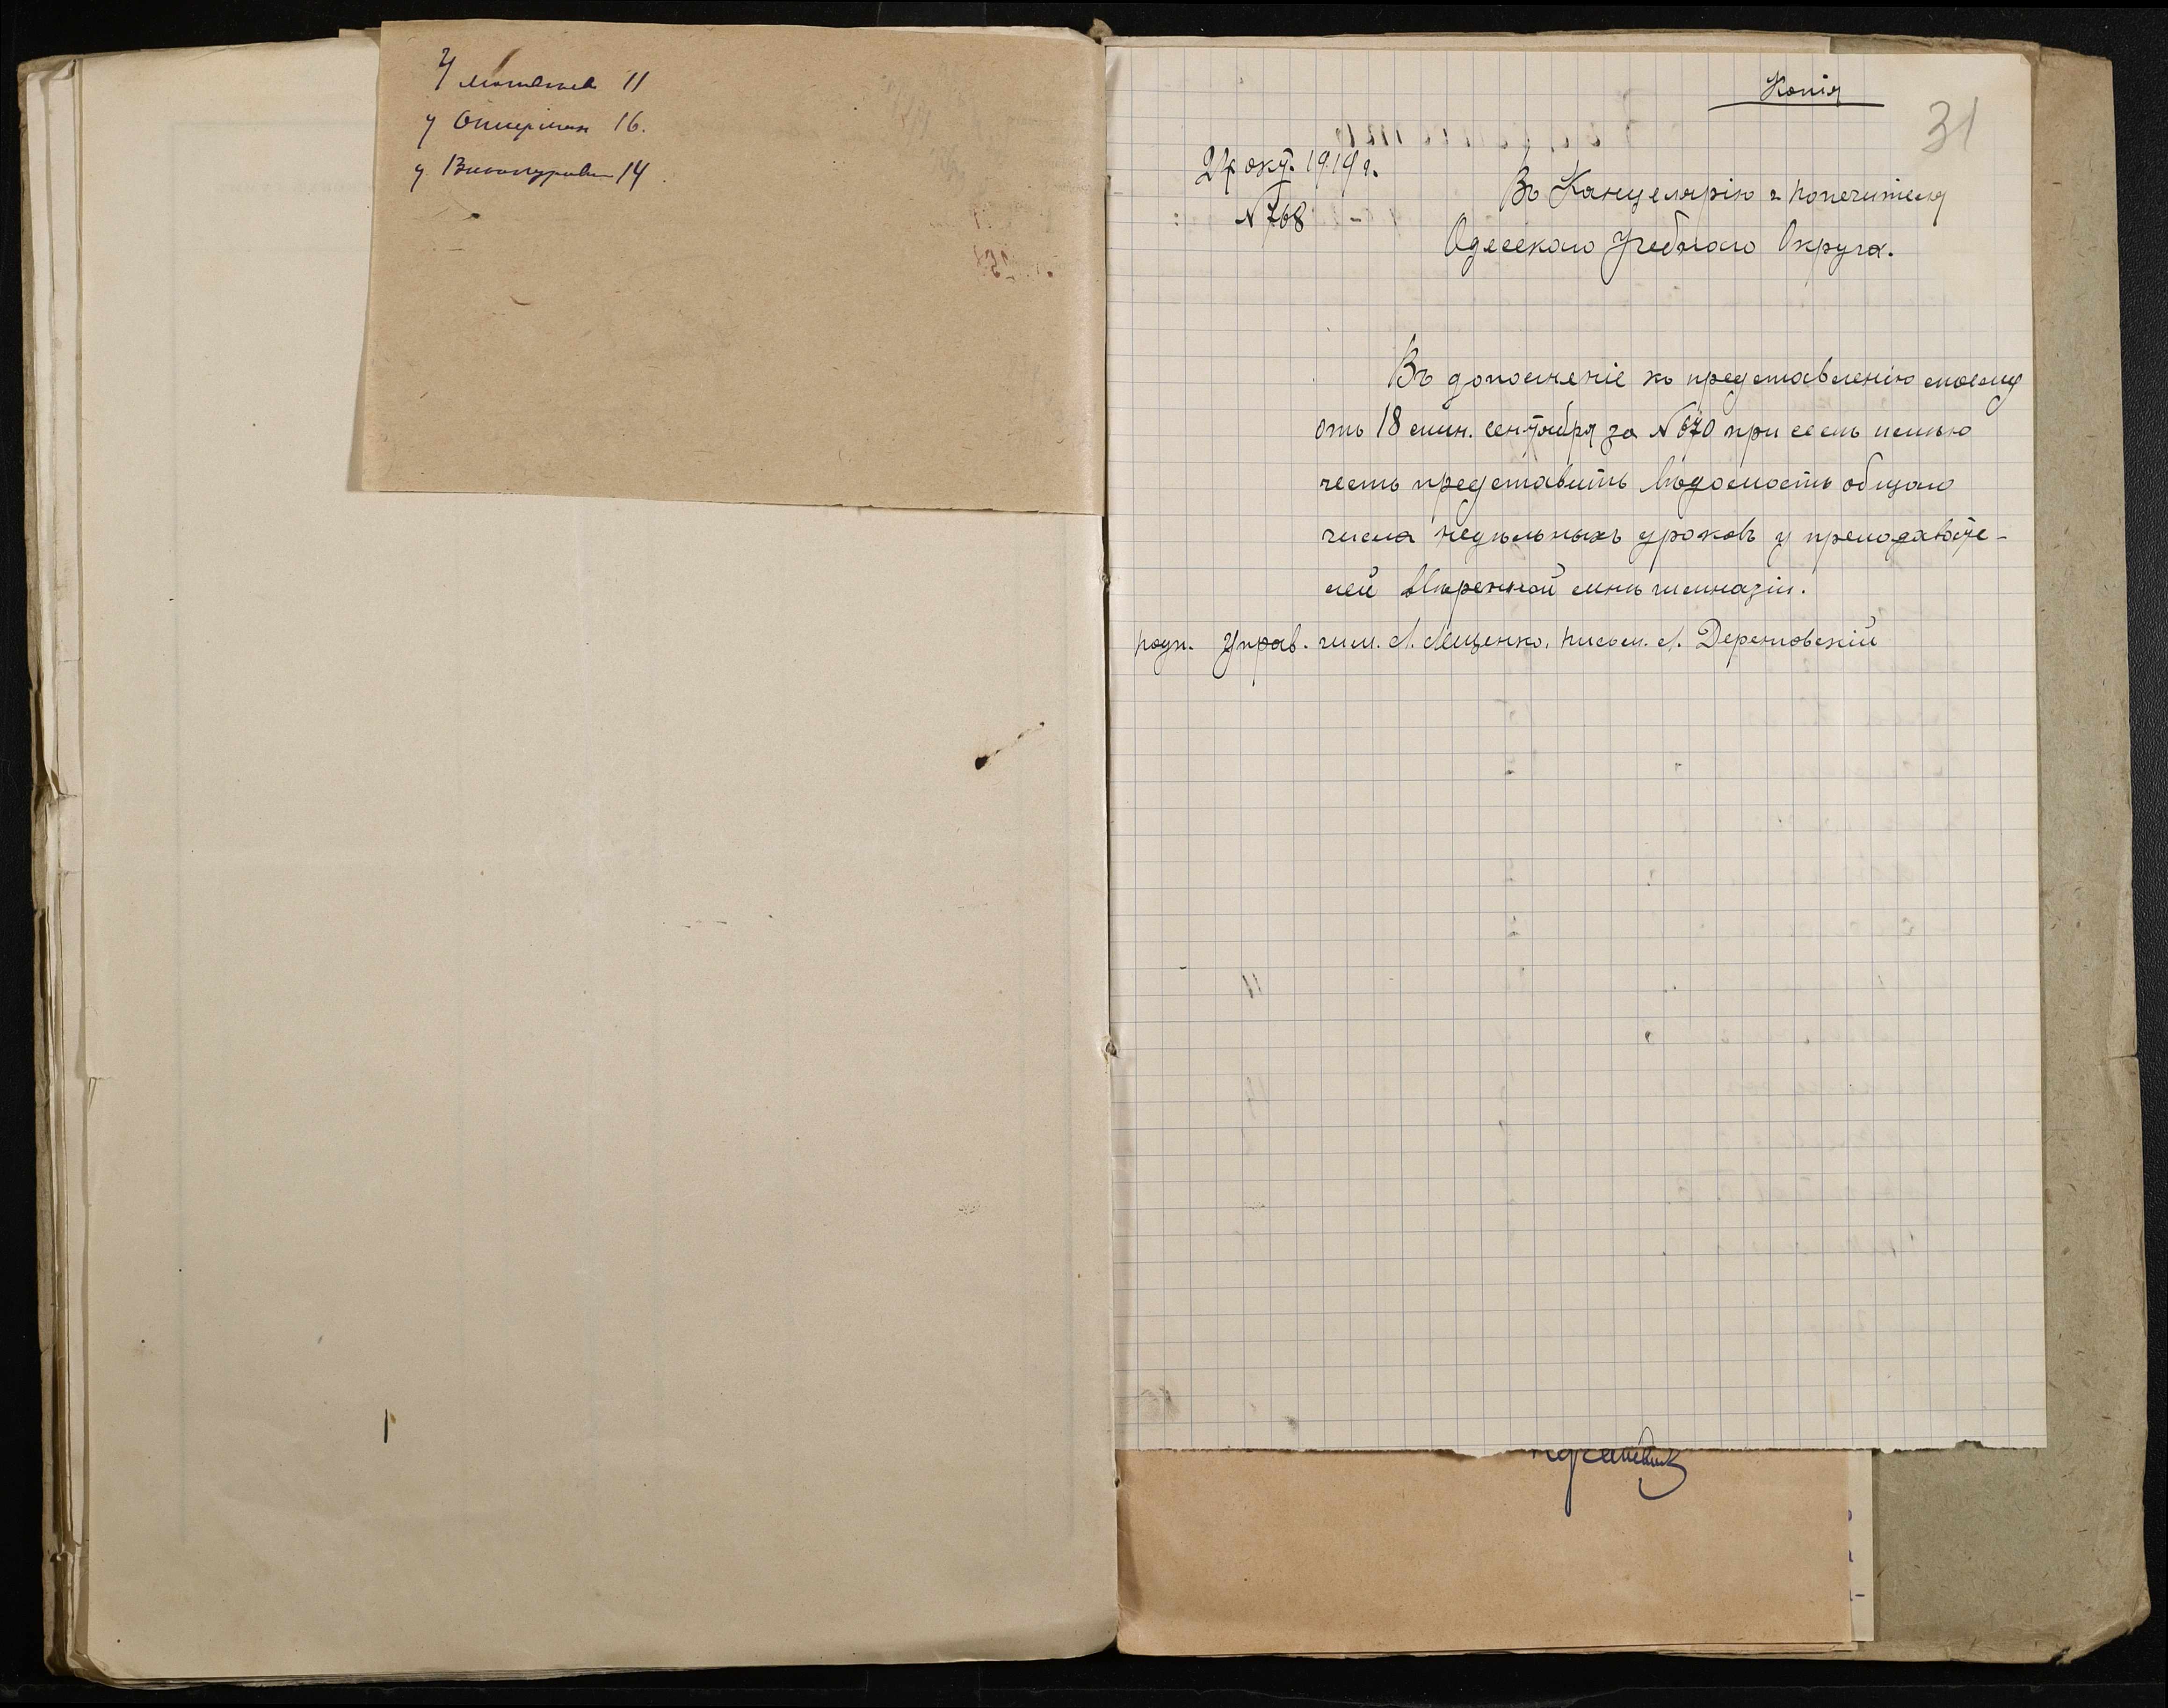 у 11
у 16.
у 14
Копія
31
27 окт. 1919 г.
№ 768
Въ Канцелярію г. попечителя
Одесскаго Учебнаго Округа.
Въ дополненіе къ представленію моему
отъ 18 мин. сентября за № 670 при семъ имѣю
честь представить вѣдомость общаго
числа недѣльныхъ уроковъ у преподавате-
лей ввѣренной мнѣ гимназіи.
подп. Управ. гим. Л. Лещенко, письм. Л.